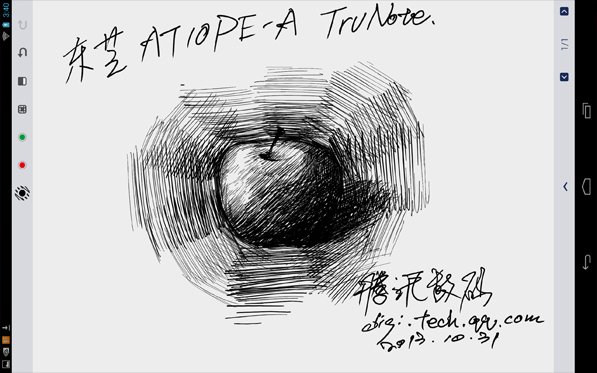 东芝 AT10PE-A TruNote.
腾讯数码
digi.tech.qq.com
2013.10.31
3:40
1/1